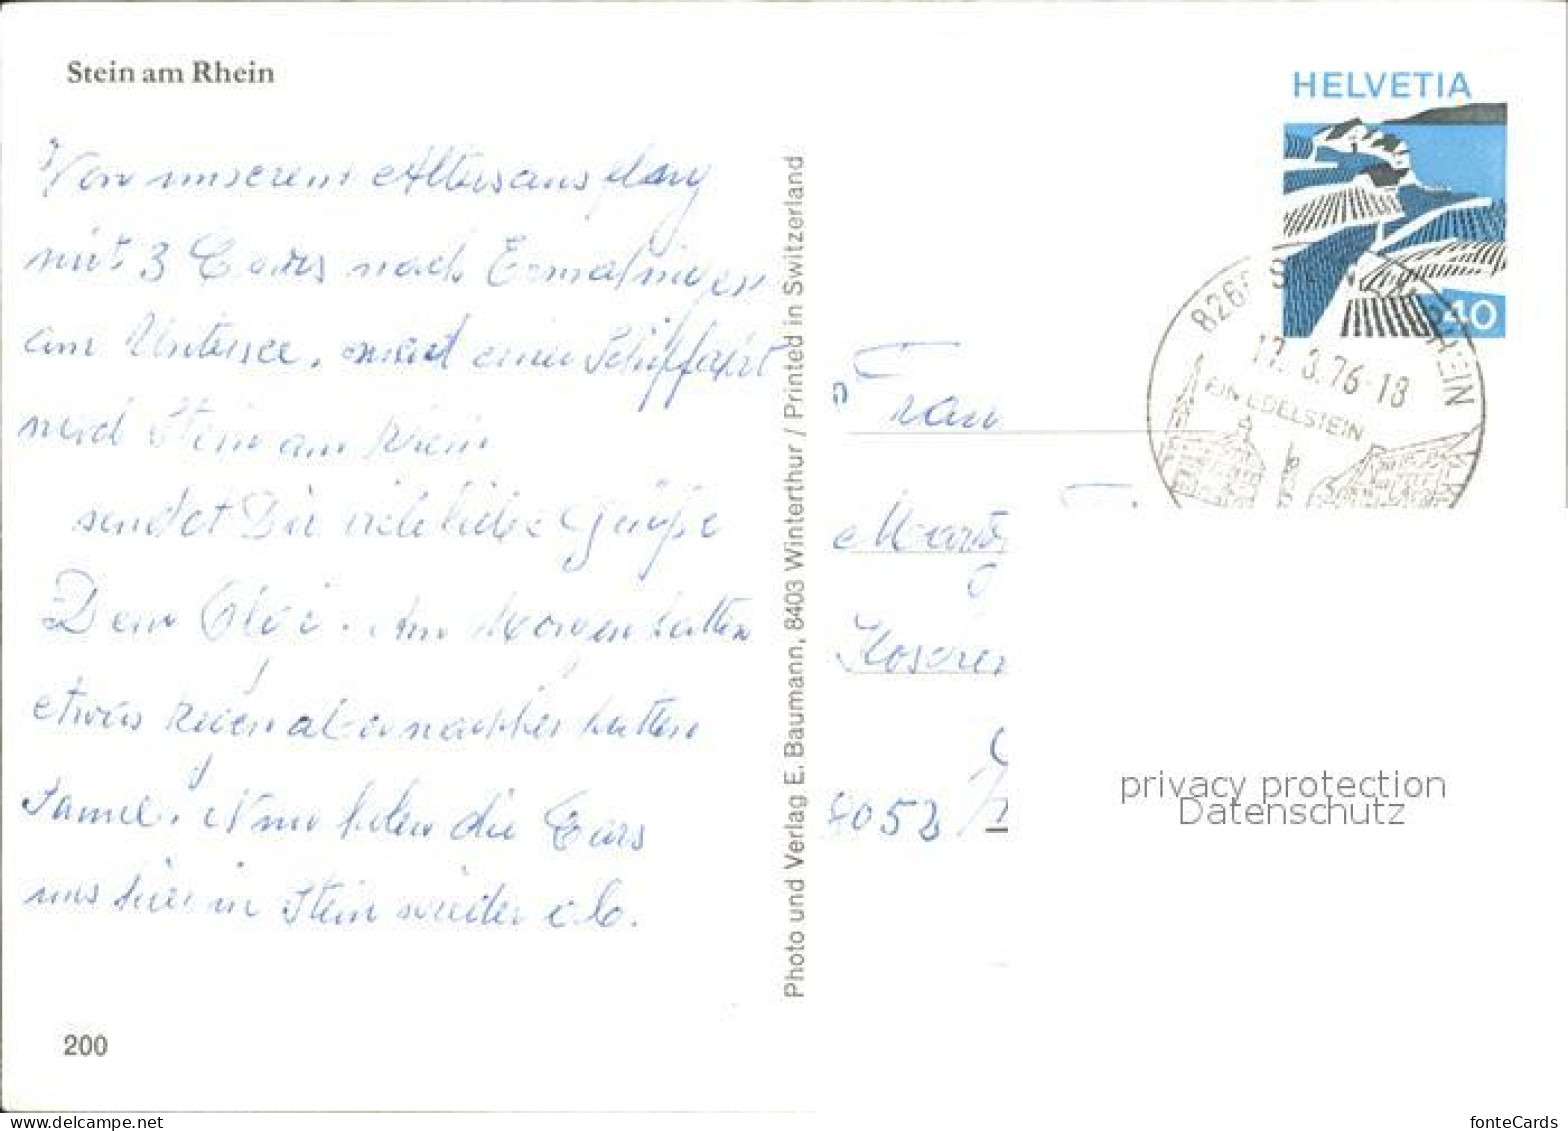 Stein am Rhein
HELVETIA
40
8260 STEIN AM RHEIN
17. 3.76-18
EIN EDELSTEIN
Von unserem Altersausflug
mit 3 Cars nach Ermatingen
am Untersee, und einer Schiffahrt
nach Stein am Rhein
sendet Dir viele liebe Grüsse
Dein Am Morgen hatten
etwas Regen aber nachher hatten
Nun holen die Cars
uns hier in Stein wieder ab.
Frau
4052
Photo und Verlag E. Baumann, 8403 Winterthur / Printed in Switzerland
privacy protection
Datenschutz
200
www.delcampe.net
fonteCards